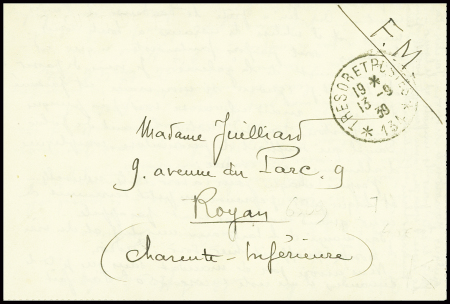 F.M.
TRESOR ET POSTES
19 *
13 -9
39
Madame Juilliard
9. avenue du Parc. 9
Royan
(Charente-Inférieure)